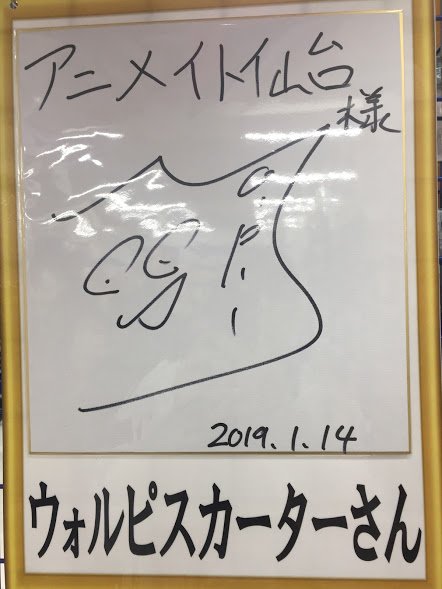 アニメイト仙台
様
2019.1.14
ウォルピスカーターさん